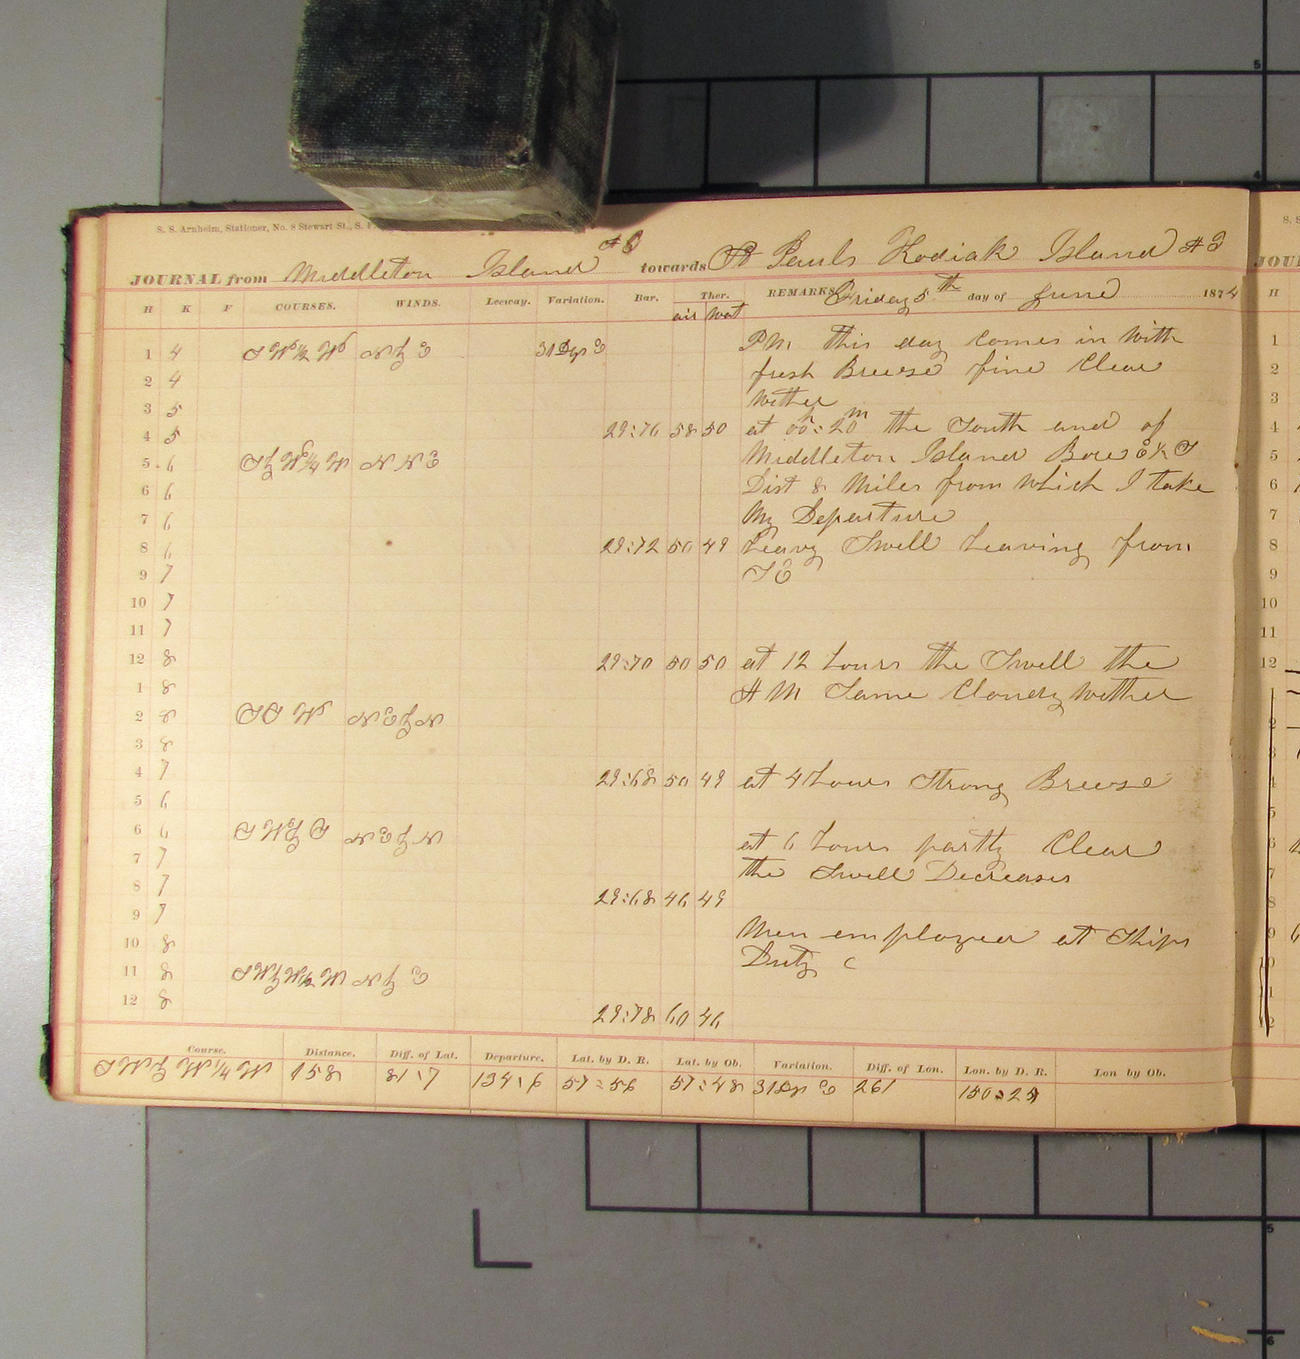 S. S. Arnheim, Stationer, No. 8 Stewart St., S. F.
JOURNAL from Middleton Island towards St Pauls Kodiak Island # 3
H K F COURSES. WINDS. Leeway. Variation. Bar. Ther. REMARKS Friday 5th day of June 1874
air Wat
1 4 SW½W N by E 31 Deg E PM this day Comes in With
2 4 fresh Breese fine Clear
3 5 Wether
4 5 29:76 58 50 at 00h:20m the South end of
5 6 S by W¼W N N E Middleton Island Bore E½S
6 6 Dist 8 Miles from Which I take
7 6 My Departure
8 6 29:72 50 49 Heavy Swell Heaving from
9 7 SE
10 7
11 7
12 8 29:70 50 50 at 12 hours the Swell the
1 8 A M Same Cloudy Wether
2 8 SSW NE by N
3 8
4 7 29:68 50 49 at 4 hours Strong Breese
5 6
6 6 SW by S NE by N at 6 hours partly Clear
7 7 the Swell Decreases
8 7 29:68 46 49
9 7 Men employed at Ships
10 8 Duty
11 8 SW by W½W N by E
12 8 29:78 60 46
Course. Distance. Diff. of Lat. Departure. Lat. by D. R. Lat. by Ob. Variation. Diff. of Lon. Lon. by D. R. Lon by Ob.
SW by W¼W 158 81.7 134.6 57:56 57:48 31 Deg E 261 150:29
S. S
JOU
H
1
2
3
4
5
6
7
8
9
10
11
12
2
3
4
5
6
7
8
9
10
11
12
5
4
5
6